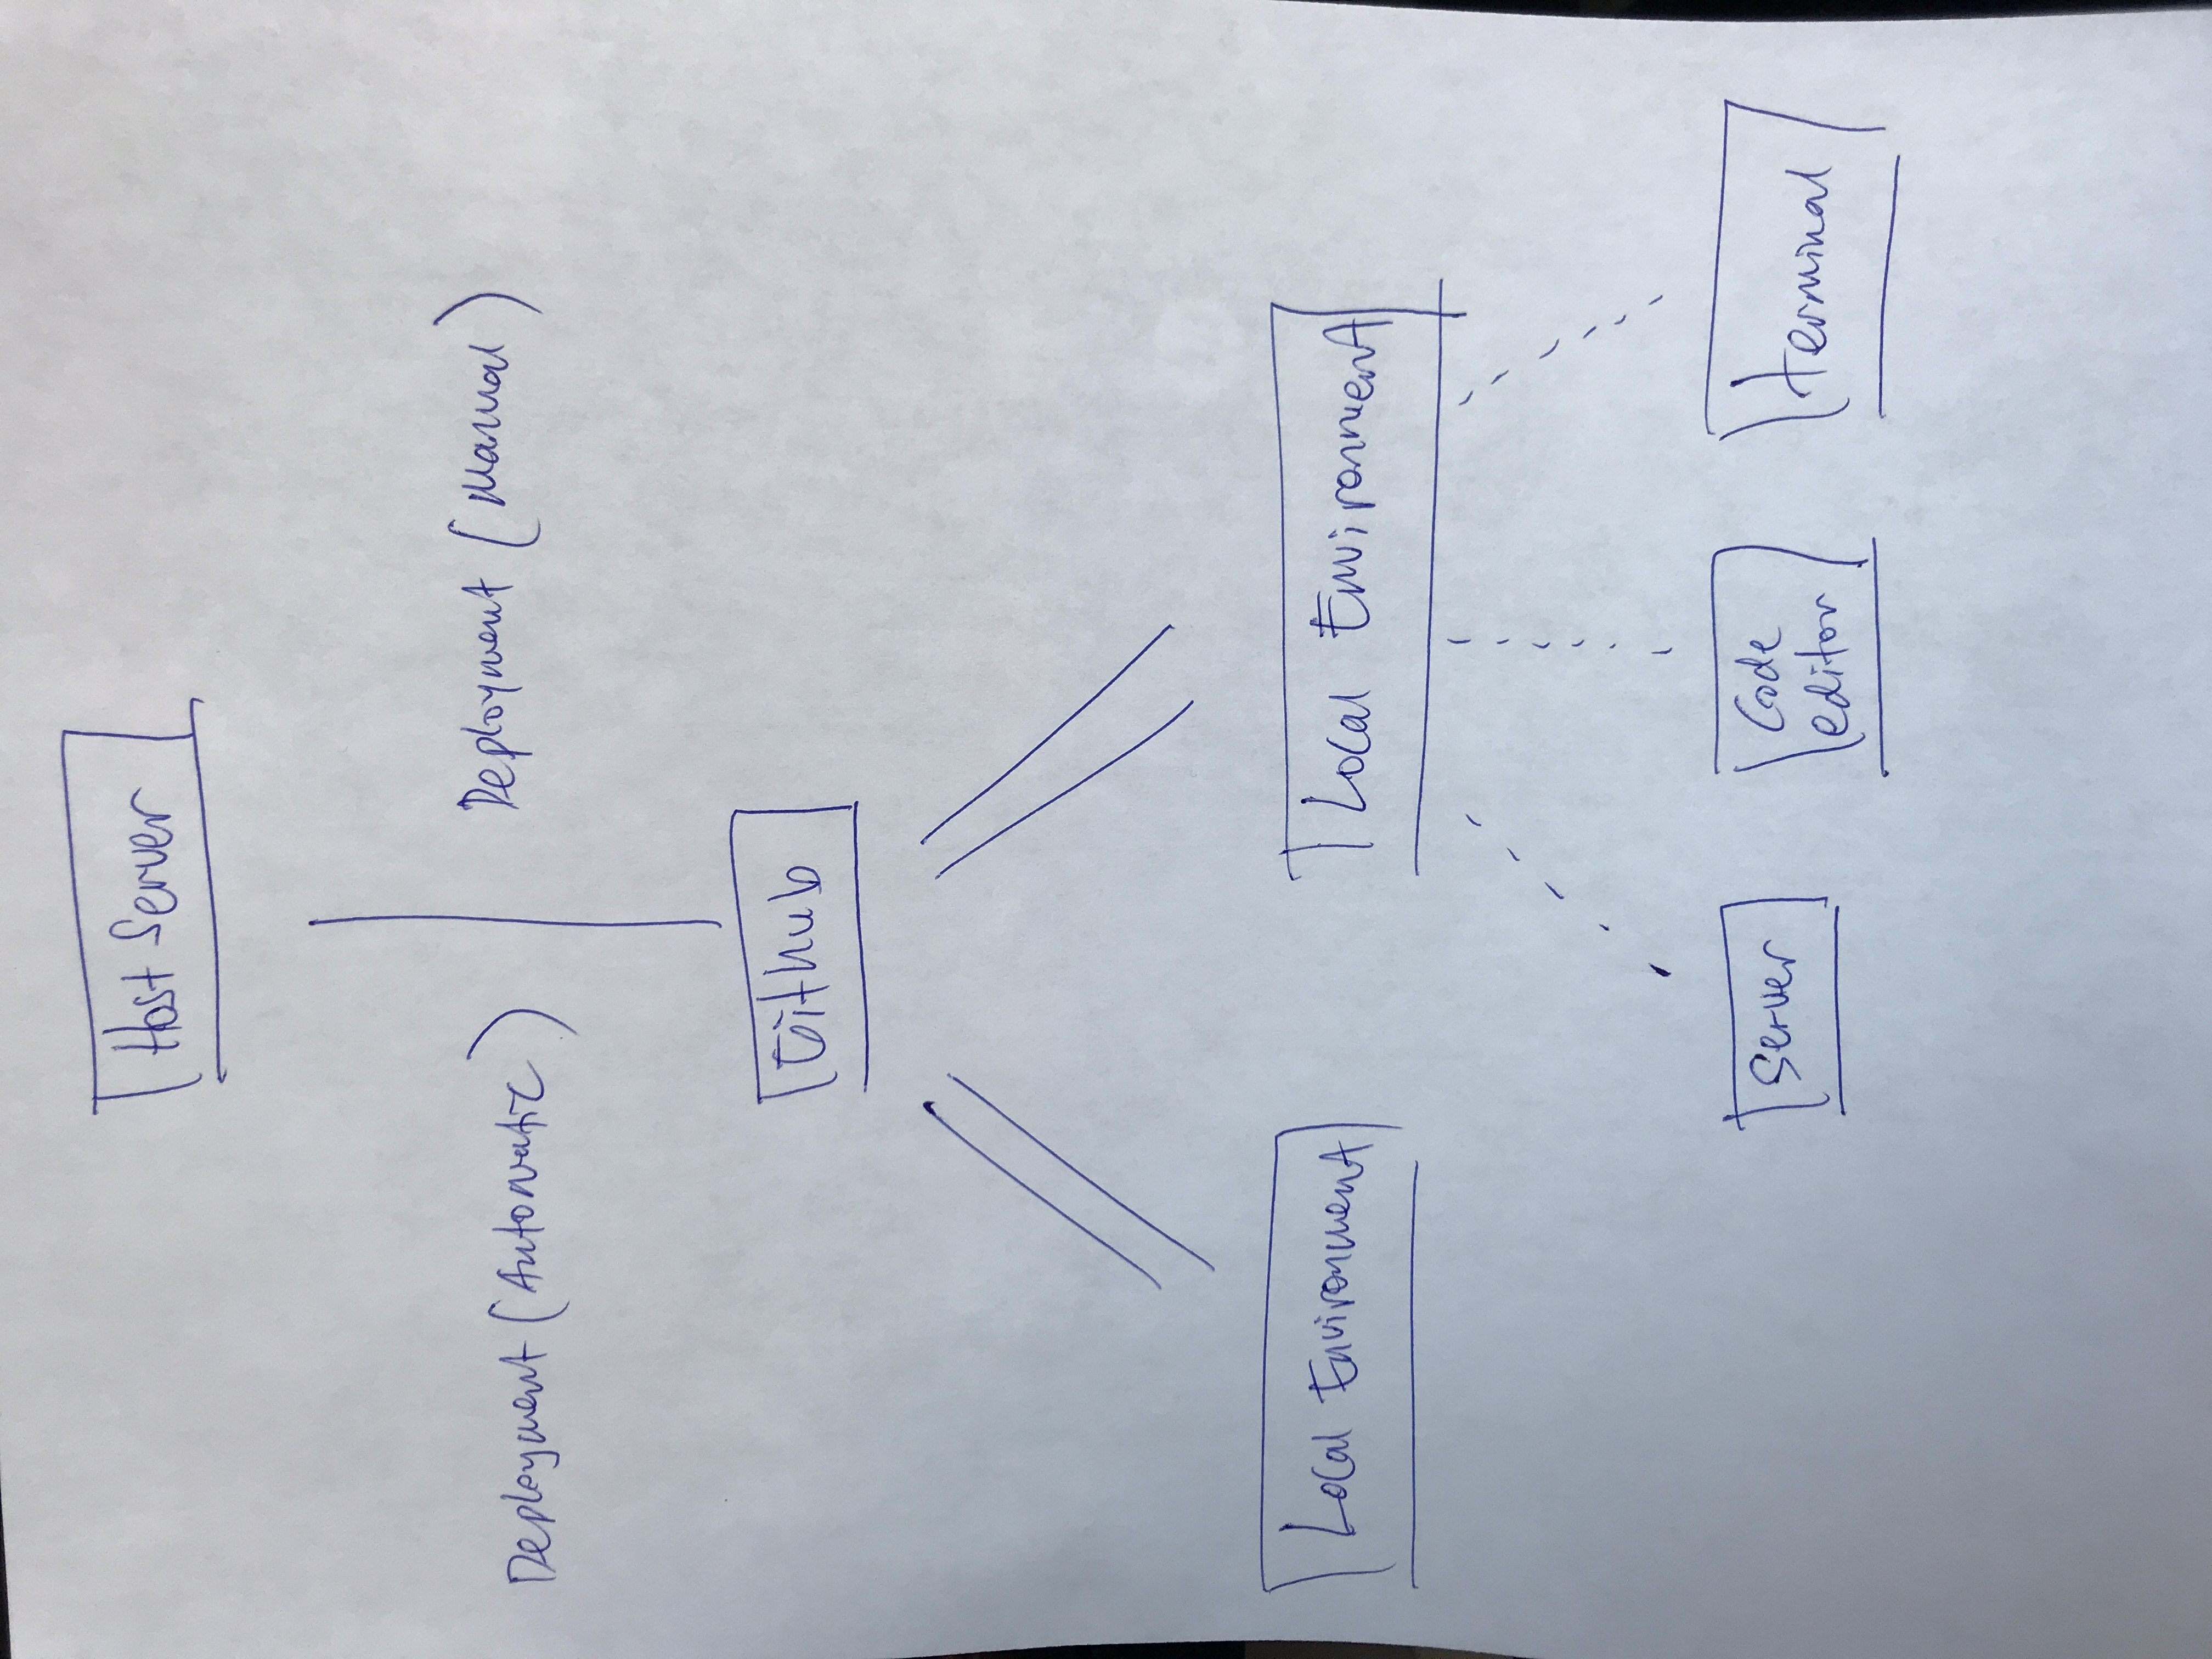 Host Server
Deployment (Automatic)
Deployment (Manual)
Github
Local Environment
Local Environment
Server
Code
editor
terminal